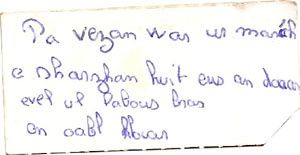 Pa vezan war ur marc'h
e tharzhan kuit eus an douar
evel ul labous bras
en oabl